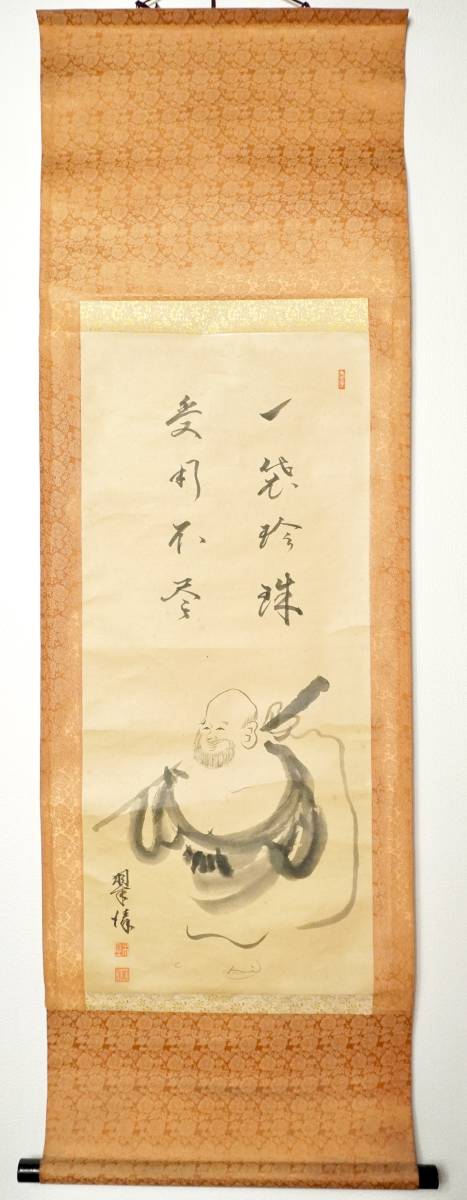 一袋珍珠
受用不尽
翠嶂